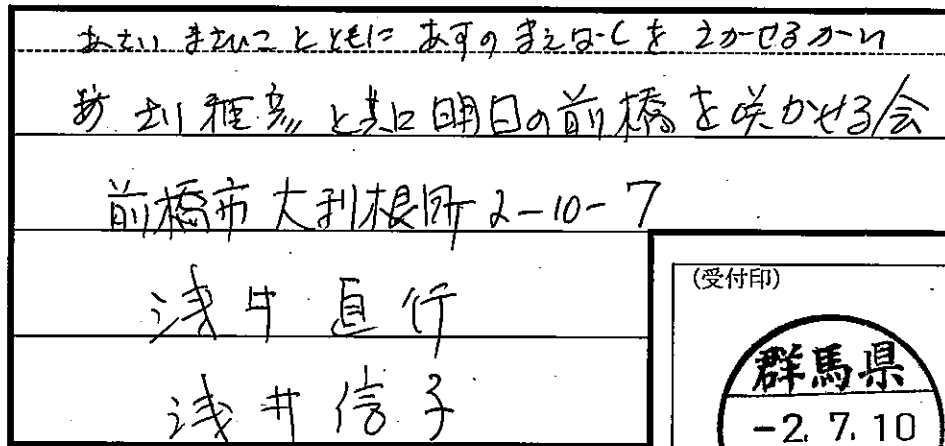 あさい まさひこ とともに あすの まえばしを さかせるかい
あさい雅彦と共に明日の前橋を咲かせる会
前橋市大利根町2-10-7
浅井直行
浅井信子
(受付印)
群馬県
-2.7.10